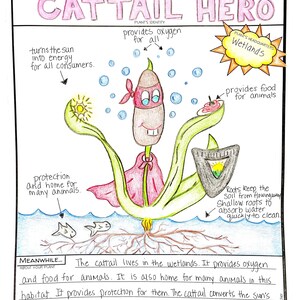 CATTAIL HERO
PLANT'S IDENTITY
provides oxygen
for all
turns the sun
into energy
for all consumers.
Wetlands
provides food
for animals
protection
and home for
many animals.
Roots keep the
soil from
Shallow roots to
absorb water
quickly to clean.
MEANWHILE...
The cattail lives in the wetlands. It provides oxygen
and food for animals. It is also home for many animals in this
habitat. It provides protection for them. The cattail converts the sun's